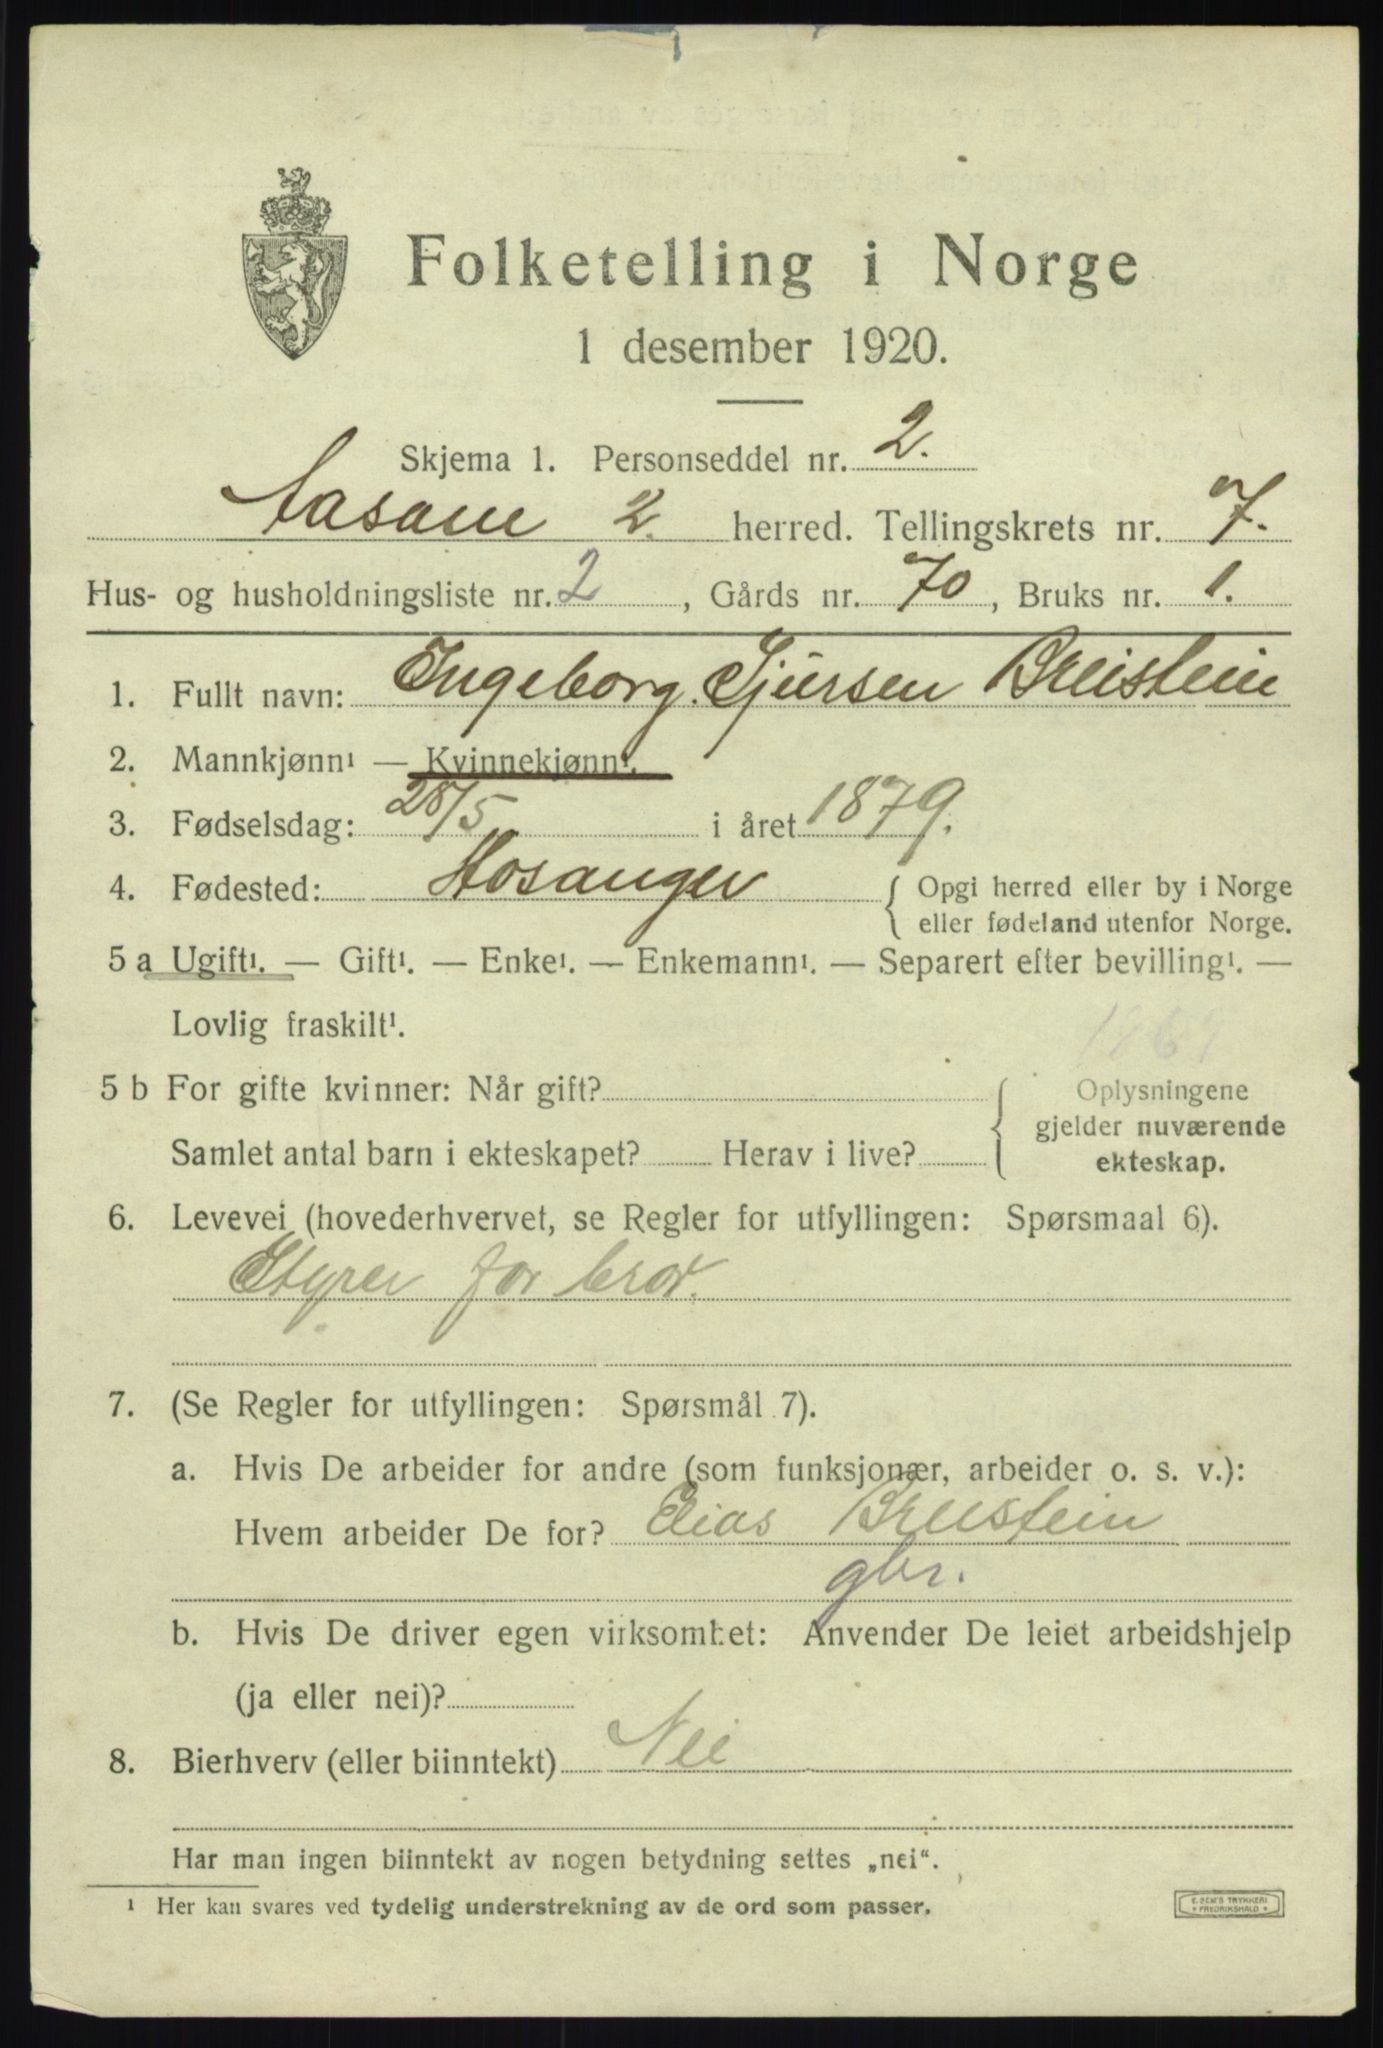 Folketelling i Norge
1 desember 1920.
Skjema 1. Personseddel nr. 2.
Aasane 2. herred. Tellingskrets nr. 7.
Hus- og husholdningsliste nr. 2, Gårds nr. 70, Bruks nr. 1.
1. Fullt navn: Ingeborg Sjursen Breistein
2. Mannkjønn¹ — Kvinnekjønn¹.
3. Fødselsdag: 28/5 i året 1879.
4. Fødested: Hosanger { Opgi herred eller by i Norge
eller fødeland utenfor Norge.
5 a Ugift¹. — Gift¹. — Enke¹. — Enkemann¹. — Separert efter bevilling¹. —
Lovlig fraskilt¹.
5 b For gifte kvinner: Når gift? { Oplysningene
gjelder nuværende
Samlet antal barn i ekteskapet? Herav i live? ekteskap.
6. Levevei (hovederhvervet, se Regler for utfyllingen: Spørsmaal 6).
Styrer for bror.
7. (Se Regler for utfyllingen: Spørsmål 7).
a. Hvis De arbeider for andre (som funksjonær, arbeider o. s. v.):
Hvem arbeider De for? Elias Breistein
gbr.
b. Hvis De driver egen virksomhet: Anvender De leiet arbeidshjelp
(ja eller nei)?
8. Bierhverv (eller biinntekt) Nei
Har man ingen biinntekt av nogen betydning settes „nei“.
¹ Her kan svares ved tydelig understrekning av de ord som passer.
E. SEM'S TRYKKERI
FREDRIKSHALD